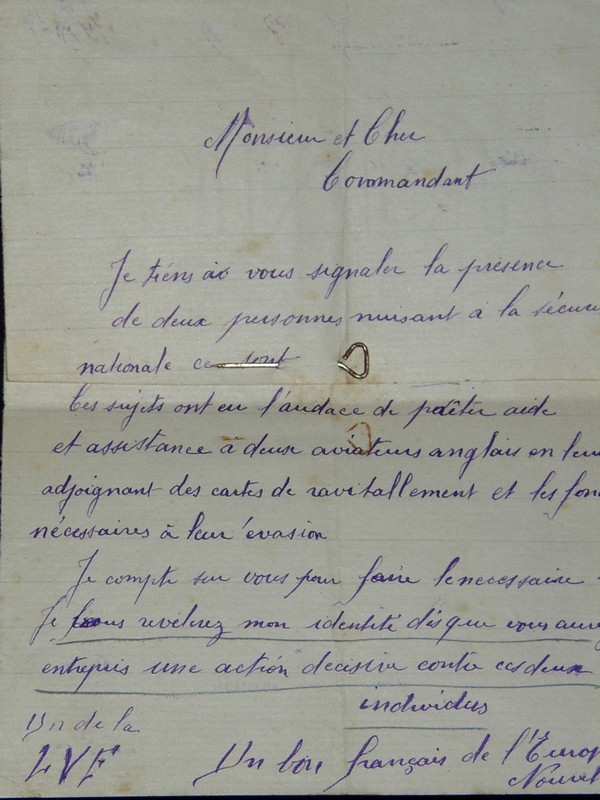 Monsieur et Cher
Commandant
Je tiens à vous signaler la présence
de deux personnes nuisant à la sécuri
nationale ce sont
Ces sujets ont eu l'audace de prêter aide
et assistance à deux aviateurs anglais en leur
adjoignant des cartes de ravitallement et les fon
nécessaires à leur évasion
Je compte sur vous pour faire le necessaire
Je vous revélerez mon identité dès que vous aure
entrepris une action decisive contre ces deux
individus
Un de la
LVF
Un bon français de l'Europ
Nouvel